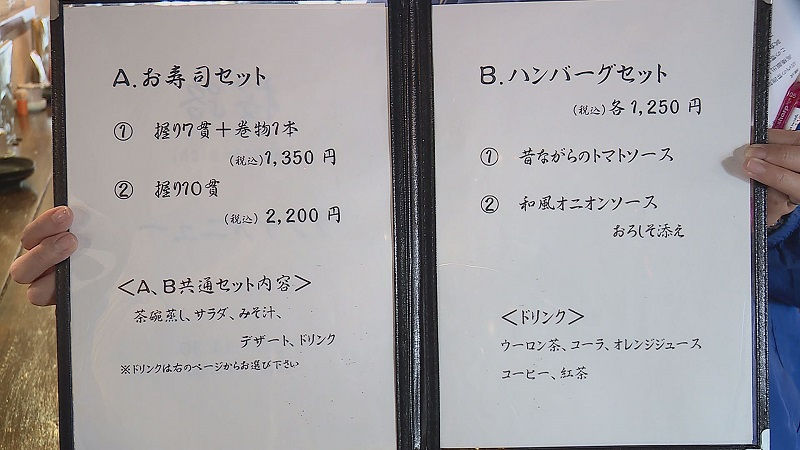 A.お寿司セット
① 握り7貫+巻物1本
(税込)1,350 円
② 握り10貫
(税込) 2,200 円
<A、B共通セット内容>
茶碗蒸し、サラダ、みそ汁、
デザート、ドリンク
※ドリンクは右のページからお選び下さい
B.ハンバーグセット
(税込)各1,250 円
① 昔ながらのトマトソース
② 和風オニオンソース
おろしそ添え
<ドリンク>
ウーロン茶、コーラ、オレンジジュース
コーヒー、紅茶